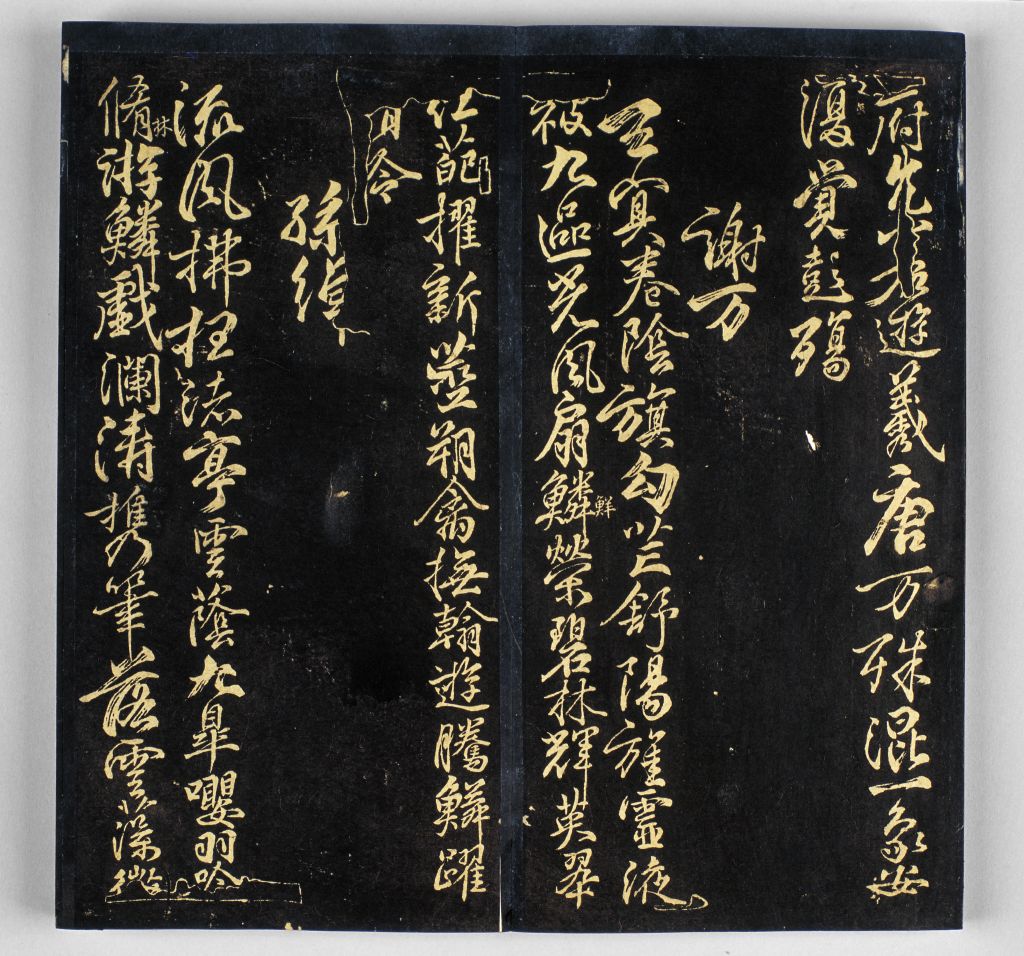 府兀若遊羲唐万殊混一象安
復覺彭殤
謝万
玄冥卷陰旗勾芒舒陽旌靈液
被九區光風扇鱗鮮榮碧林輝英翠
紅葩擢新莖翔禽撫翰遊騰鱗躍
清泠
孫綽
流風拂枉渚亭雲蔭九皋嚶羽吟
脩林游鱗戲瀾濤攜筆落雲藻微